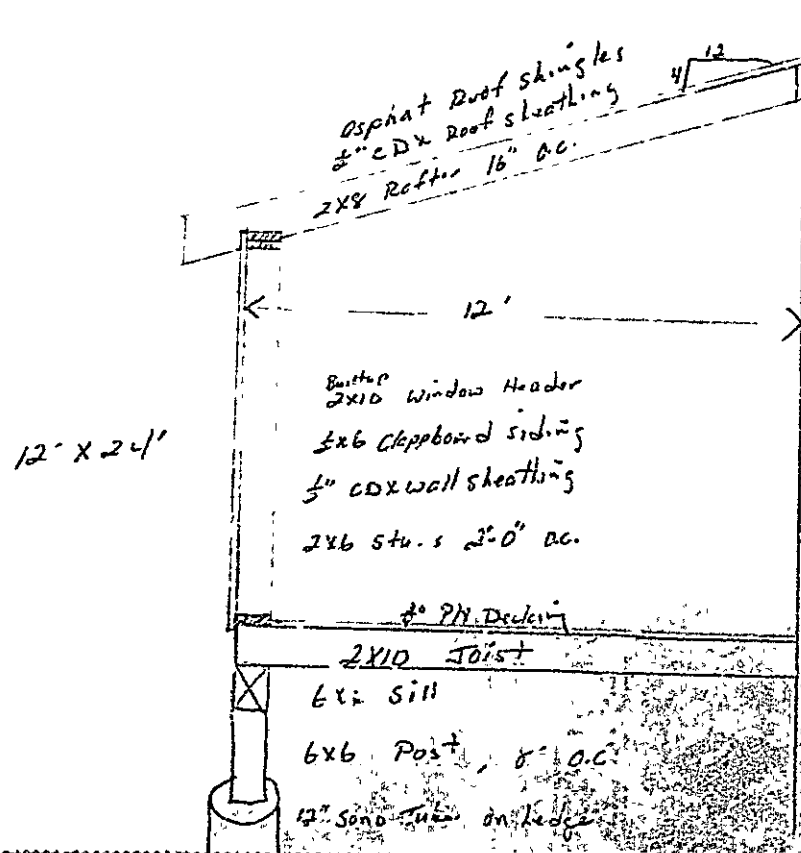 Asphat Roof Shingles
12
4
1/2" CDX Roof sheathing
2x8 Rafter 16" O.C.
12'
Builtup
2x10 Window Header
1/2x6 Clappboard siding
1/2" CDX wall sheathing
12' X 24'
2x6 2'-0" O.C.
Decking
2X10 Joist
Sill
6x6 Post, 8' O.C.
12" Sono Tubes on Ledge